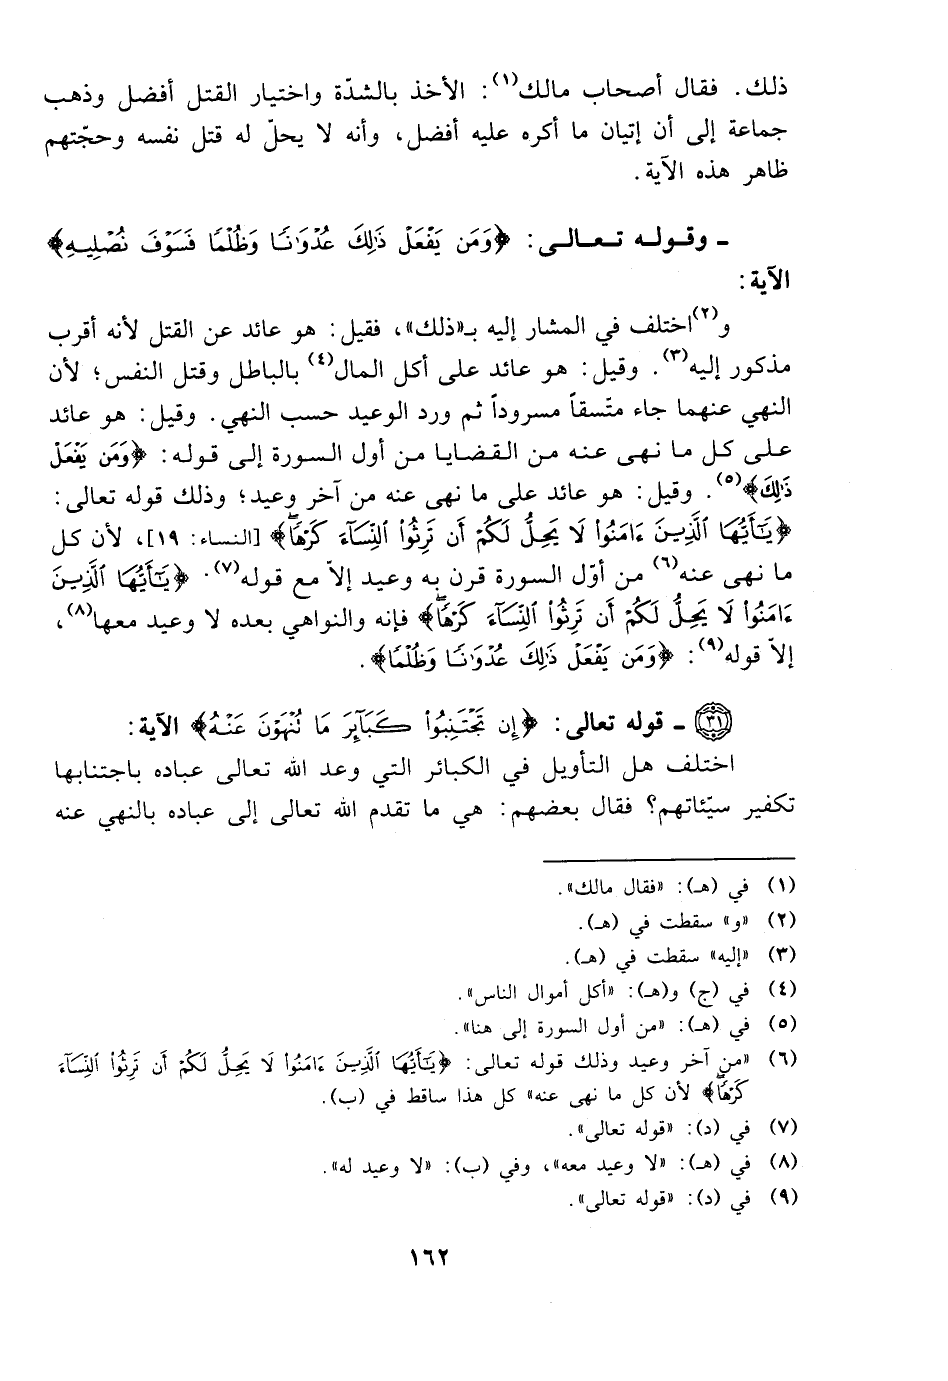 ذلك. فقال أصحاب مالك(١): الأخذ بالشدّة واختيار القتل أفضل وذهب
جماعة إلى أن إتيان ما أكره عليه أفضل، وأنه لا يحلّ له قتل نفسه وحجّتهم
ظاهر هذه الآية.
ـ وقوله تعالى: ﴿وَمَن يَفْعَلْ ذَٰلِكَ عُدْوَٰنًا وَظُلْمًا فَسَوْفَ نُصْلِيهِ﴾
الآية:
و(٢)اختلف في المشار إليه بـ«ذلك»، فقيل: هو عائد عن القتل لأنه أقرب
مذكور إليه(٣). وقيل: هو عائد على أكل المال(٤) بالباطل وقتل النفس؛ لأن
النهي عنهما جاء متّسقاً مسروداً ثم ورد الوعيد حسب النهي. وقيل: هو عائد
على كل ما نهى عنه من القضايا من أول السورة إلى قوله: ﴿وَمَن يَفْعَلْ
ذَٰلِكَ﴾(٥). وقيل: هو عائد على ما نهى عنه من آخر وعيد؛ وذلك قوله تعالى:
﴿يَٰٓأَيُّهَا ٱلَّذِينَ ءَامَنُوا۟ لَا يَحِلُّ لَكُمْ أَن تَرِثُوا۟ ٱلنِّسَآءَ كَرْهًاۖ﴾ [النساء: ١٩]، لأن كل
ما نهى عنه(٦) من أوّل السورة قرن به وعيد إلاّ مع قوله(٧). ﴿يَٰٓأَيُّهَا ٱلَّذِينَ
ءَامَنُوا۟ لَا يَحِلُّ لَكُمْ أَن تَرِثُوا۟ ٱلنِّسَآءَ كَرْهًاۖ﴾ فإنه والنواهي بعده لا وعيد معها(٨)،
إلاّ قوله(٩): ﴿وَمَن يَفْعَلْ ذَٰلِكَ عُدْوَٰنًا وَظُلْمًا﴾.
(٣١) ـ قوله تعالى: ﴿إِن تَجْتَنِبُوا۟ كَبَآئِرَ مَا تُنْهَوْنَ عَنْهُ﴾ الآية:
اختلف هل التأويل في الكبائر التي وعد الله تعالى عباده باجتنابها
تكفير سيّئاتهم؟ فقال بعضهم: هي ما تقدم الله تعالى إلى عباده بالنهي عنه
(١) في (هـ): «فقال مالك».
(٢) «و» سقطت في (هـ).
(٣) «إليه» سقطت في (هـ).
(٤) في (ج) و(هـ): «أكل أموال الناس».
(٥) في (هـ): «من أول السورة إلى هنا».
(٦) «من آخر وعيد وذلك قوله تعالى: ﴿يَٰٓأَيُّهَا ٱلَّذِينَ ءَامَنُوا۟ لَا يَحِلُّ لَكُمْ أَن تَرِثُوا۟ ٱلنِّسَآءَ
كَرْهًاۖ﴾ لأن كل ما نهى عنه» كل هذا ساقط في (ب).
(٧) في (د): «قوله تعالى».
(٨) في (هـ): «لا وعيد معه»، وفي (ب): «لا وعيد له».
(٩) في (د): «قوله تعالى».
١٦٢